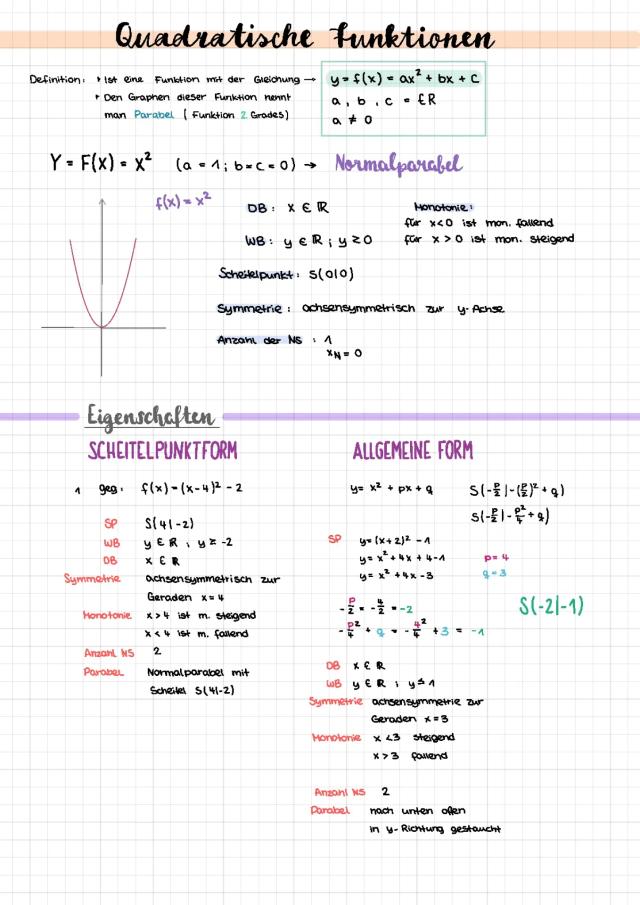 Quadratische Funktionen
Definition: • Ist eine Funktion mit der Gleichung → y = f(x) = ax² + bx + c
• Den Graphen dieser Funktion nennt
man Parabel ( Funktion 2 Grades)
a, b, c = € R
a ≠ 0
Y = F(x) = x² (a = 1; b=c=0) → Normalparabel
f(x) = x²
DB: x ∈ ℝ
WB: y ∈ ℝ; y ≥ 0
Scheitelpunkt: S(0|0)
Symmetrie: achsensymmetrisch zur y-Achse
Anzahl der NS: 1
xN = 0
Monotonie:
für x<0 ist mon. fallend
für x > 0 ist mon. steigend
Eigenschaften
SCHEITELPUNKTFORM
1 geg: f(x) = (x-4)² - 2
SP S(4|-2)
WB y ∈ ℝ, y ≥ -2
DB x ∈ ℝ
Symmetrie achsensymmetrisch zur
Geraden x = 4
Monotonie x > 4 ist m. steigend
x < 4 ist m. fallend
Anzahl NS 2
Parabel Normalparabel mit
Scheitel S(4|-2)
ALLGEMEINE FORM
y = x² + px + q S(-p/2|-(p/2)² + q)
S(-p/2|-p²/4 + q)
SP y = (x+2)² - 1
y = x² + 4x + 4-1 p = 4
y = x² + 4x - 3 q = 3
-p/2 = -4/2 = -2
-p²/4 + q = -4²/4 + 3 = -1
S(-2|-1)
DB x ∈ ℝ
WB y ∈ ℝ; y ≤ 1
Symmetrie achsensymmetrie zur
Geraden x = 3
Monotonie x < 3 steigend
x > 3 fallend
Anzahl NS 2
Parabel nach unten offen
in y-Richtung gestaucht